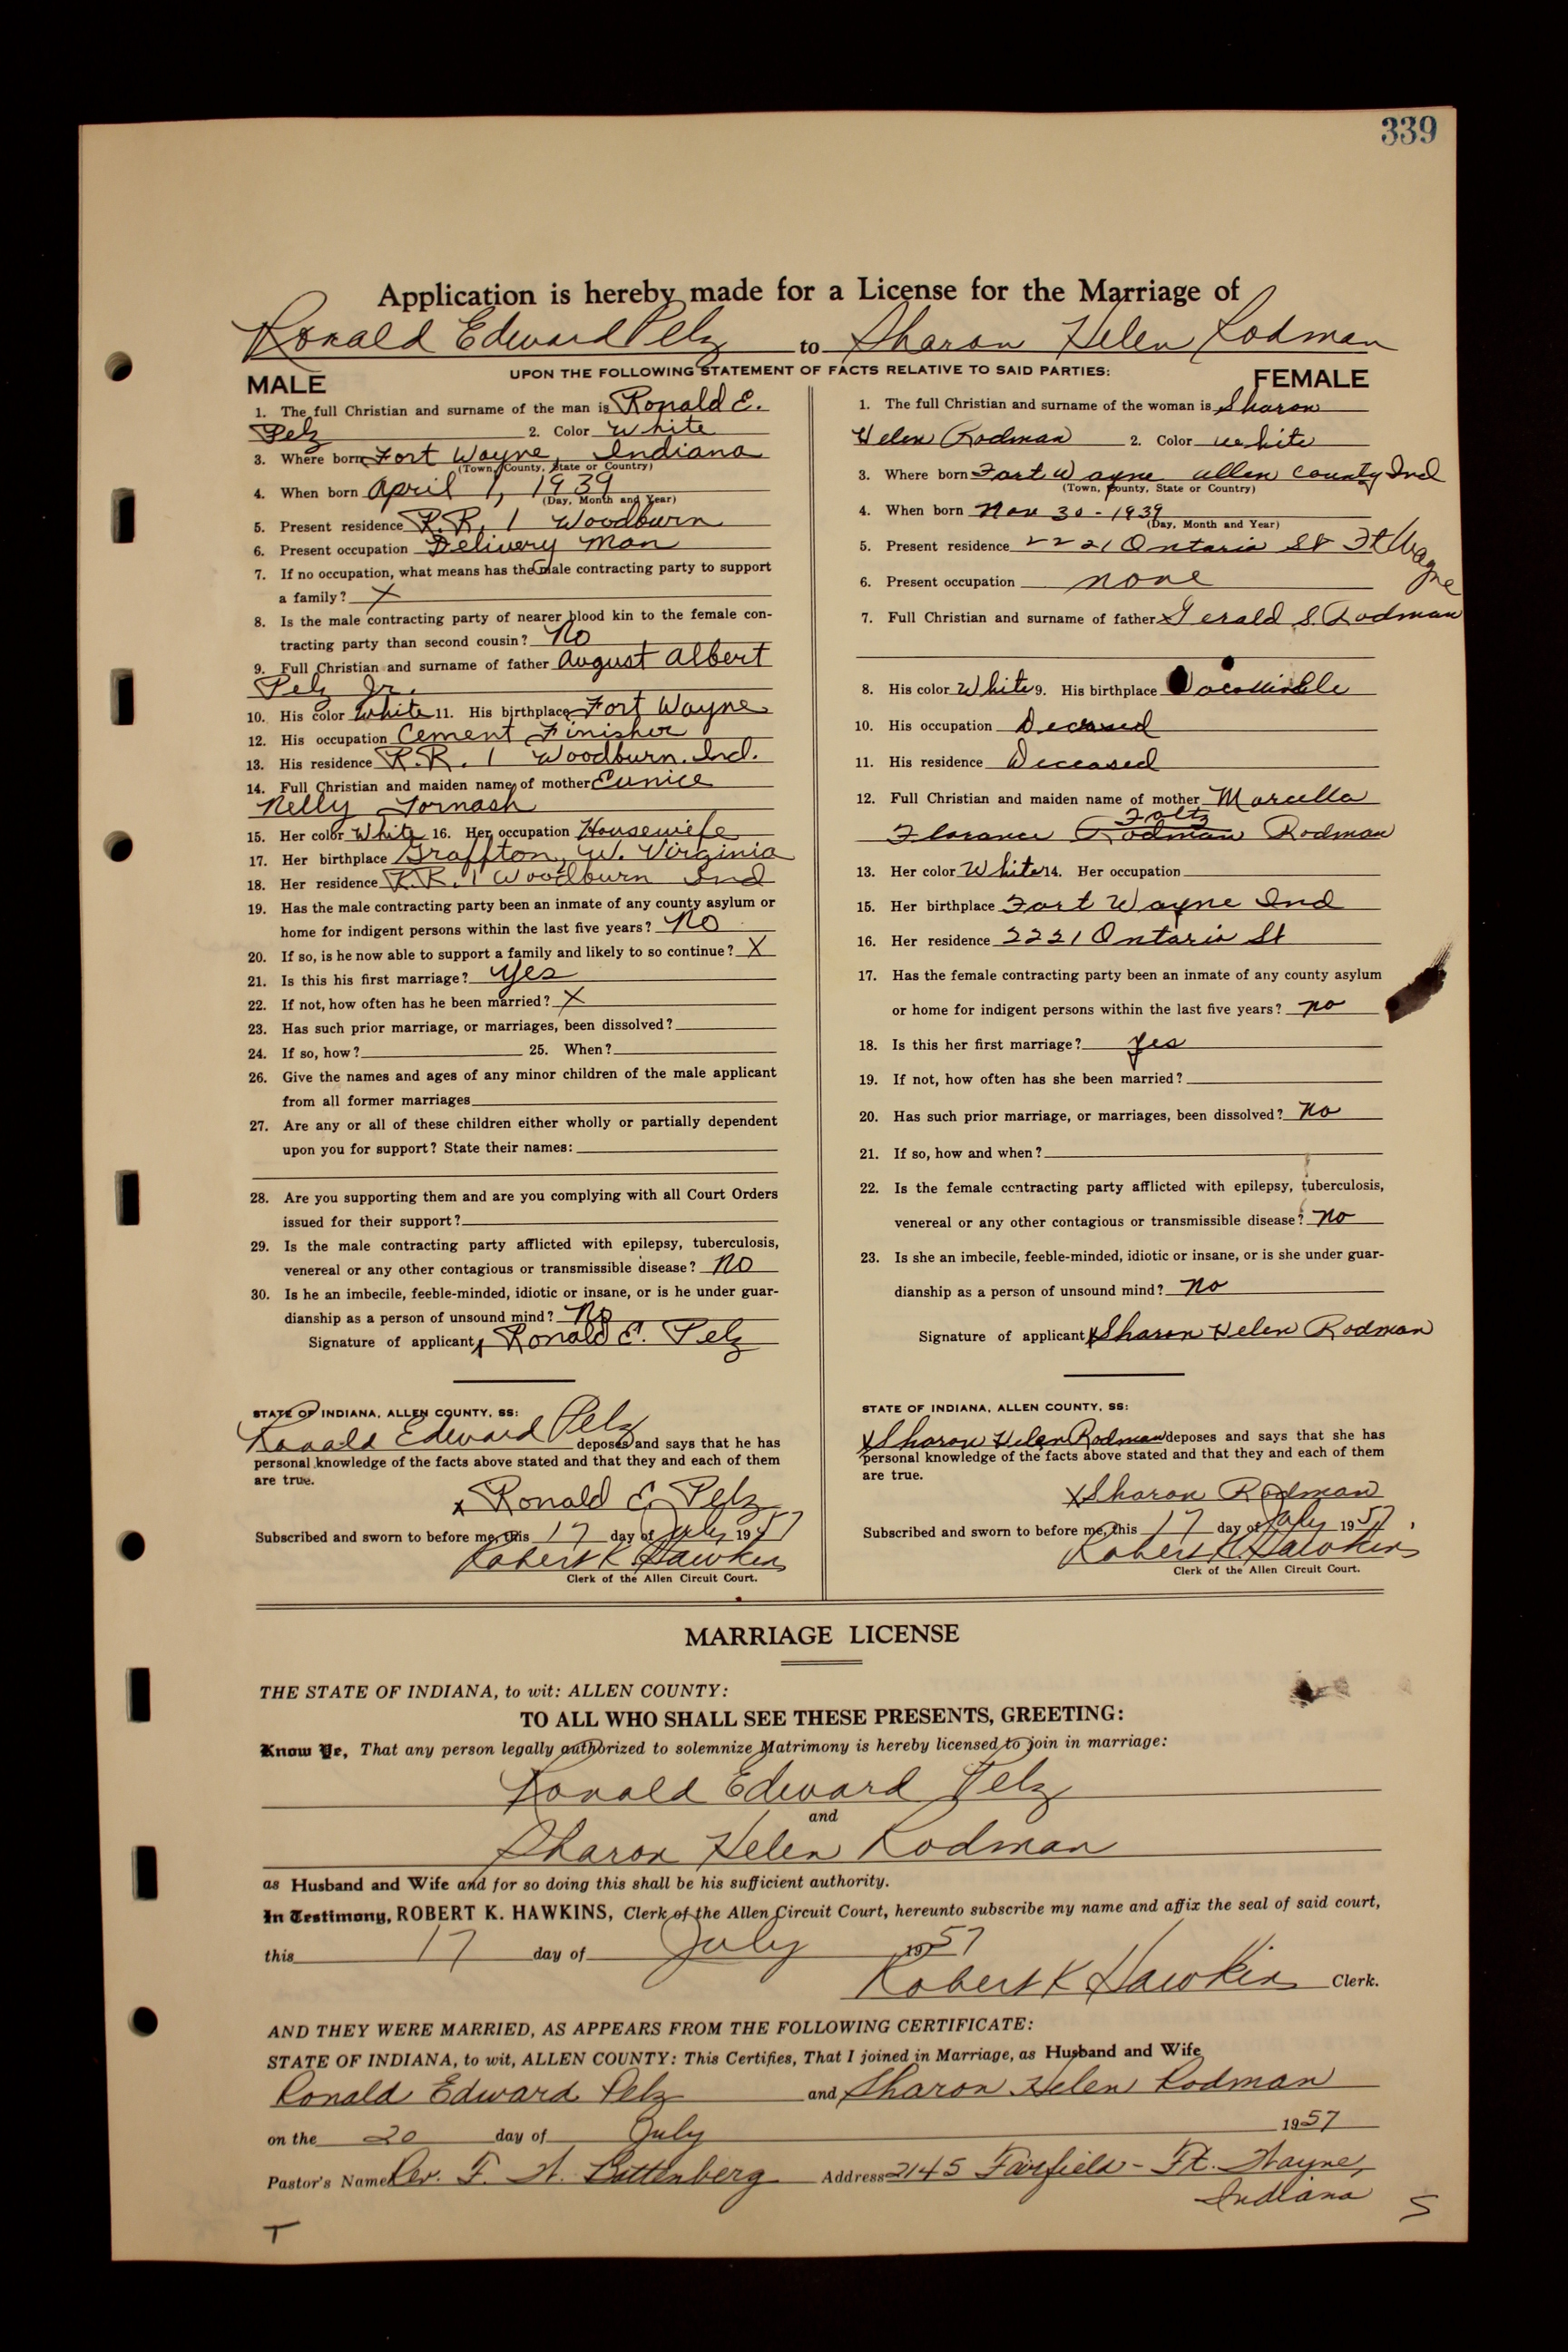 339
Application is hereby made for a License for the Marriage of
Ronald Edward Pelz to Sharon Helen Rodman
UPON THE FOLLOWING STATEMENT OF FACTS RELATIVE TO SAID PARTIES:
MALE
1. The full Christian and surname of the man is Ronald E.
Pelz 2. Color White
3. Where born Fort Wayne, Indiana
(Town, County, State or Country)
4. When born April 1, 1939
(Day, Month and Year)
5. Present residence R.R. 1 Woodburn
6. Present occupation Delivery Man
7. If no occupation, what means has the male contracting party to support
a family? X
8. Is the male contracting party of nearer blood kin to the female con-
tracting party than second cousin? No
9. Full Christian and surname of father August Albert
Pelz Jr.
10. His color White 11. His birthplace Fort Wayne
12. His occupation Cement Finisher
13. His residence R.R. 1 Woodburn, Ind.
14. Full Christian and maiden name of mother Eunice
Nelly Tornash
15. Her color White 16. Her occupation Housewife
17. Her birthplace Graffton, W. Virginia
18. Her residence R.R. 1 Woodburn Ind
19. Has the male contracting party been an inmate of any county asylum or
home for indigent persons within the last five years? No
20. If so, is he now able to support a family and likely to so continue? X
21. Is this his first marriage? Yes
22. If not, how often has he been married? X
23. Has such prior marriage, or marriages, been dissolved?
24. If so, how? 25. When?
26. Give the names and ages of any minor children of the male applicant
from all former marriages
27. Are any or all of these children either wholly or partially dependent
upon you for support? State their names:
28. Are you supporting them and are you complying with all Court Orders
issued for their support?
29. Is the male contracting party afflicted with epilepsy, tuberculosis,
venereal or any other contagious or transmissible disease? No
30. Is he an imbecile, feeble-minded, idiotic or insane, or is he under guar-
dianship as a person of unsound mind? No
Signature of applicant x Ronald E. Pelz
STATE OF INDIANA, ALLEN COUNTY, SS:
Ronald Edward Pelz deposes and says that he has
personal knowledge of the facts above stated and that they and each of them
are true.
x Ronald E. Pelz
Subscribed and sworn to before me, this 17 day of July 1957
Robert K Hawkins
Clerk of the Allen Circuit Court.
FEMALE
1. The full Christian and surname of the woman is Sharon
Helen Rodman 2. Color White
3. Where born Fort Wayne Allen County Ind
(Town, County, State or Country)
4. When born Nov 30 - 1939
(Day, Month and Year)
5. Present residence 2221 Ontario St Ft Wayne
6. Present occupation none
7. Full Christian and surname of father Gerald S. Rodman
8. His color White 9. His birthplace
10. His occupation Deceased
11. His residence Deceased
12. Full Christian and maiden name of mother Marcella
Foltz
Florance Rodman Rodman
13. Her color White 14. Her occupation
15. Her birthplace Fort Wayne Ind
16. Her residence 2221 Ontario St
17. Has the female contracting party been an inmate of any county asylum
or home for indigent persons within the last five years? no
18. Is this her first marriage? yes
19. If not, how often has she been married?
20. Has such prior marriage, or marriages, been dissolved? no
21. If so, how and when?
22. Is the female contracting party afflicted with epilepsy, tuberculosis,
venereal or any other contagious or transmissible disease? no
23. Is she an imbecile, feeble-minded, idiotic or insane, or is she under guar-
dianship as a person of unsound mind? no
Signature of applicant x Sharon Helen Rodman
STATE OF INDIANA, ALLEN COUNTY, SS:
x Sharon Helen Rodman deposes and says that she has
personal knowledge of the facts above stated and that they and each of them
are true.
x Sharon Rodman
Subscribed and sworn to before me, this 17 day of July 1957
Robert K Hawkins
Clerk of the Allen Circuit Court.
MARRIAGE LICENSE
THE STATE OF INDIANA, to wit: ALLEN COUNTY:
TO ALL WHO SHALL SEE THESE PRESENTS, GREETING:
Know Ye, That any person legally authorized to solemnize Matrimony is hereby licensed to join in marriage:
Ronald Edward Pelz
and
Sharon Helen Rodman
as Husband and Wife and for so doing this shall be his sufficient authority.
In Testimony, ROBERT K. HAWKINS, Clerk of the Allen Circuit Court, hereunto subscribe my name and affix the seal of said court,
this 17 day of July 1957
Robert K Hawkins Clerk.
AND THEY WERE MARRIED, AS APPEARS FROM THE FOLLOWING CERTIFICATE:
STATE OF INDIANA, to wit, ALLEN COUNTY: This Certifies, That I joined in Marriage, as Husband and Wife
Ronald Edward Pelz and Sharon Helen Rodman
on the 20 day of July 1957
Pastor's Name Rev. F. A. Battenberg Address 2145 Fairfield - Ft. Wayne,
Indiana
T S